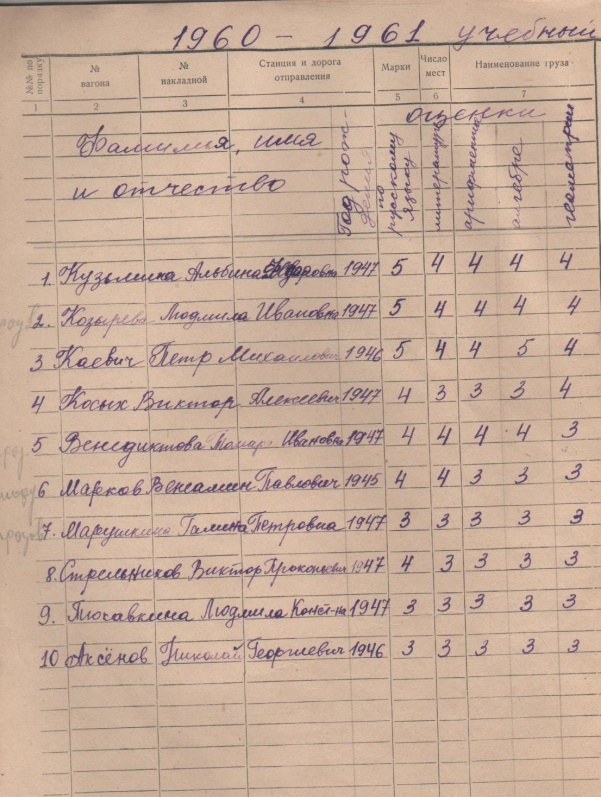 1960 – 1961 учебный
№№ по порядку
№ вагона
№ накладной
Станция и дорога отправления
Марки
Число мест
Наименование груза
1 2 3 4 5 6 7
оценки
Фамилия, имя
и отчество
Год рождения
по русскому языку
литературе
арифметике
алгебре
геометрии
1. Кузьмина Альбина 1947 5 4 4 4 4
2. Козырева Людмила Ивановна 1947 5 4 4 4 4
3 Каевич Петр Михайлович 1946 5 4 4 5 4
4 Косых Виктор Алексеевич 1947 4 3 3 3 4
5 Венедиктова Тамар Ивановна 1947 4 4 4 4 3
6 Марков Венамин Павлович 1945 4 4 3 3 3
7. Марушкина Галина Петровна 1947 3 3 3 3 3
8. Стрельников Виктор Прокопьевич 1947 4 3 3 3 3
9. Тюкавкина Людмила Конст-на 1947 3 3 3 3 3
10 Аксёнов Николай Георгиевич 1946 3 3 3 3 3